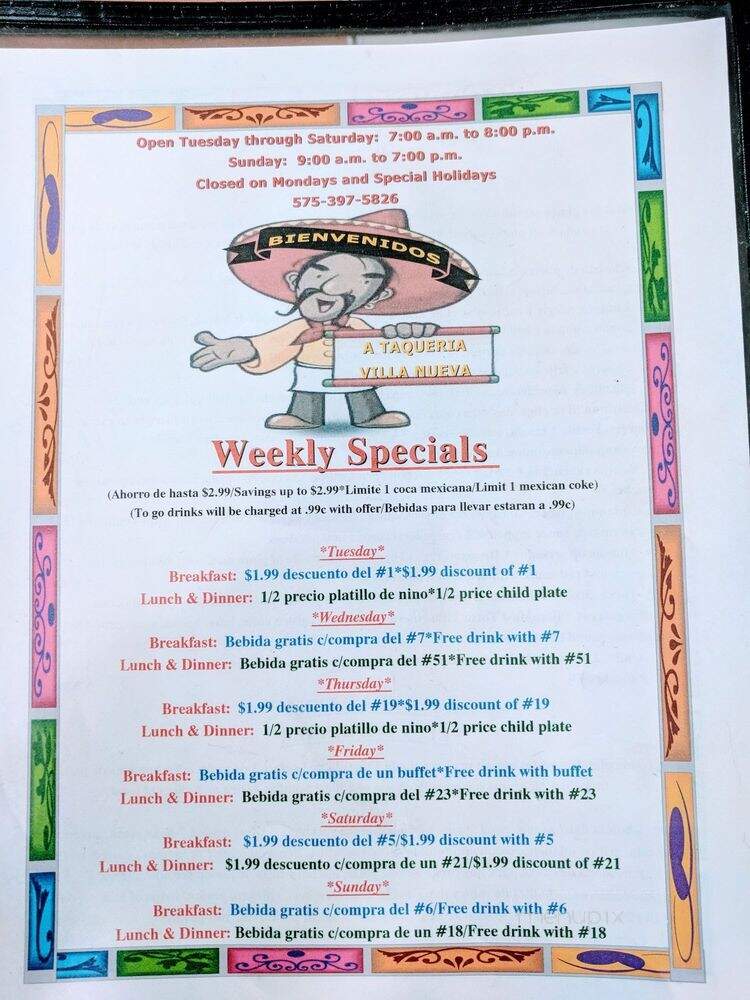 Open Tuesday through Saturday: 7:00 a.m. to 8:00 p.m.
Sunday: 9:00 a.m. to 7:00 p.m.
Closed on Mondays and Special Holidays
575-397-5826
BIENVENIDOS
A TAQUERIA
VILLA NUEVA
Weekly Specials
(Ahorro de hasta $2.99/Savings up to $2.99*Limite 1 coca mexicana/Limit 1 mexican coke)
(To go drinks will be charged at .99c with offer/Bebidas para llevar estaran a .99c)
*Tuesday*
Breakfast: $1.99 descuento del #1*$1.99 discount of #1
Lunch & Dinner: 1/2 precio platillo de nino*1/2 price child plate
*Wednesday*
Breakfast: Bebida gratis c/compra del #7*Free drink with #7
Lunch & Dinner: Bebida gratis c/compra del #51*Free drink with #51
*Thursday*
Breakfast: $1.99 descuento del #19*$1.99 discount of #19
Lunch & Dinner: 1/2 precio platillo de nino*1/2 price child plate
*Friday*
Breakfast: Bebida gratis c/compra de un buffet*Free drink with buffet
Lunch & Dinner: Bebida gratis c/compra del #23*Free drink with #23
*Saturday*
Breakfast: $1.99 descuento del #5/$1.99 discount with #5
Lunch & Dinner: $1.99 descuento c/compra de un #21/$1.99 discount of #21
*Sunday*
Breakfast: Bebida gratis c/compra del #6/Free drink with #6
Lunch & Dinner: Bebida gratis c/compra de un #18/Free drink with #18